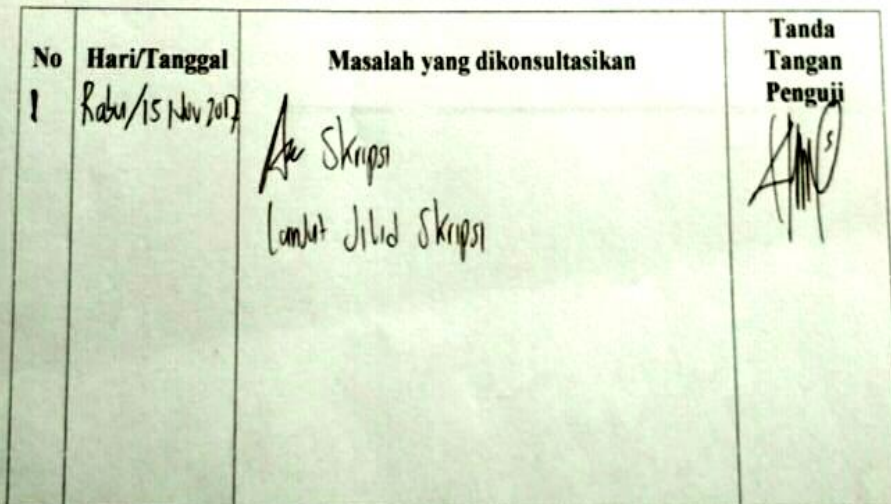 No Hari/Tanggal Masalah yang dikonsultasikan Tanda Tangan Penguji
1 Rabu/15 Nov 2017
Acc Skripsi
Lanjut Jilid Skripsi